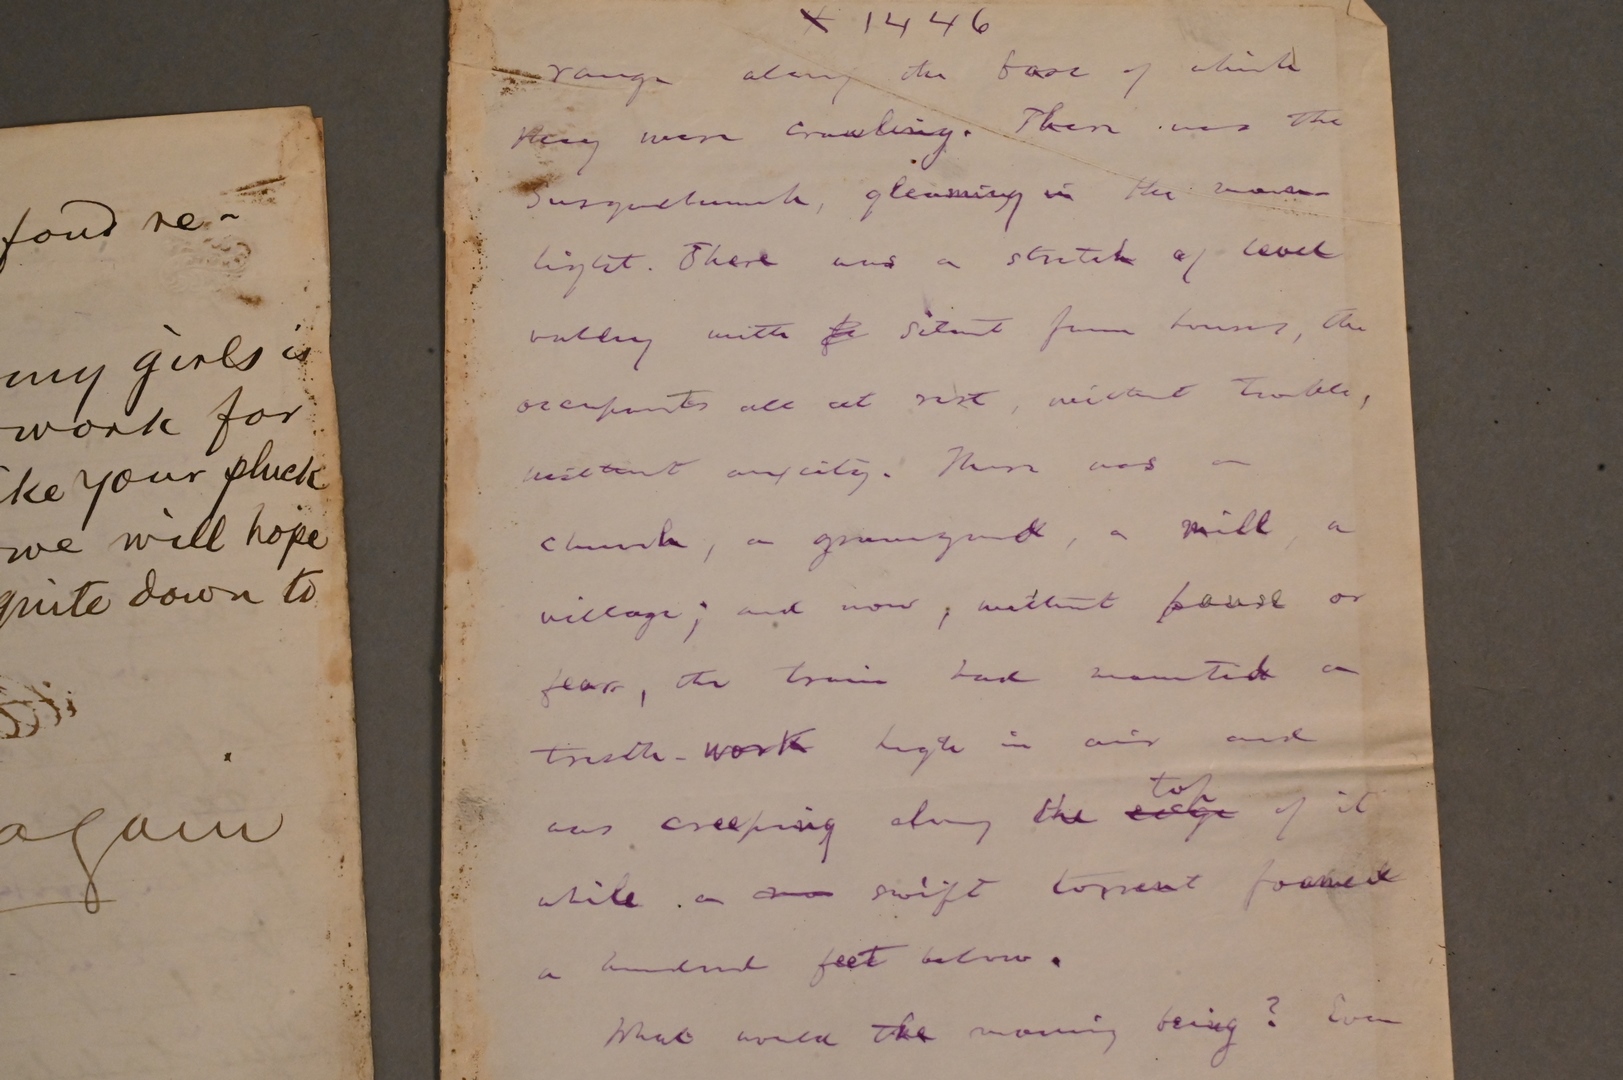 fond re-
my girls is
work for
ike your pluck
we will hope
quite down to
again
x 1446
range along the base of which
they were crawling. There was the
Susquehannah, gleaming in the moon-
light. There was a stretch of level
valley with silent farm houses, the
occupants all at rest, without trouble,
without anxiety. There was a
church, a graveyard, a mill, a
village; and now, without pause or
fear, the train had mounted a
trestle-work high in air and
was creeping along the edge top of it
while a swift torrent foamed
a hundred feet below.
What would the morning bring? Even